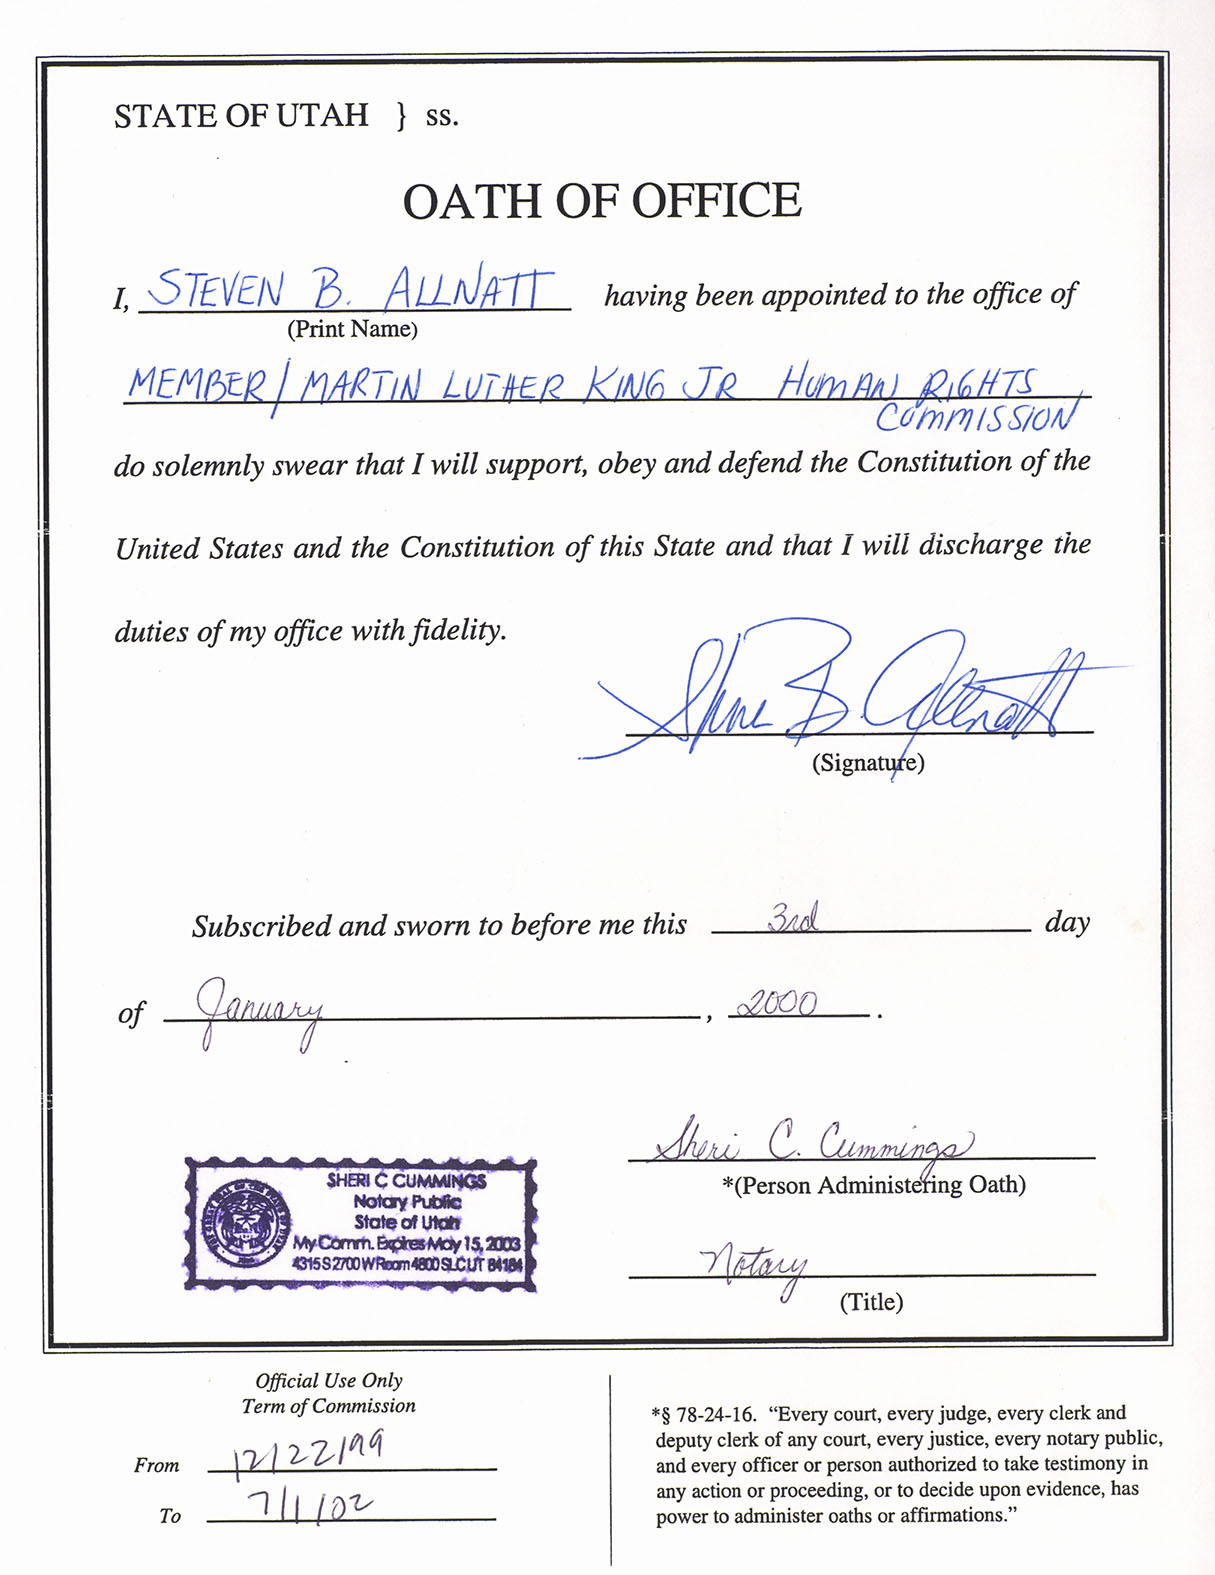 STATE OF UTAH } ss.
OATH OF OFFICE
I, STEVEN B. ALLNATT having been appointed to the office of
(Print Name)
MEMBER/MARTIN LUTHER KING JR HUMAN RIGHTS
COMMISSION
do solemnly swear that I will support, obey and defend the Constitution of the
United States and the Constitution of this State and that I will discharge the
duties of my office with fidelity.
Steven B. Allnatt
(Signature)
Subscribed and sworn to before me this 3rd day
of January, 2000.
Sheri C. Cummings
*(Person Administering Oath)
SHERI C CUMMINGS
Notary Public
State of Utah
My Comm. Expires May 15, 2003
4315 S 2700 W Room 4800 SLC UT 84184
Notary
(Title)
Official Use Only
Term of Commission
From 12/22/99
To 7/1/02
*§ 78-24-16. “Every court, every judge, every clerk and
deputy clerk of any court, every justice, every notary public,
and every officer or person authorized to take testimony in
any action or proceeding, or to decide upon evidence, has
power to administer oaths or affirmations.”